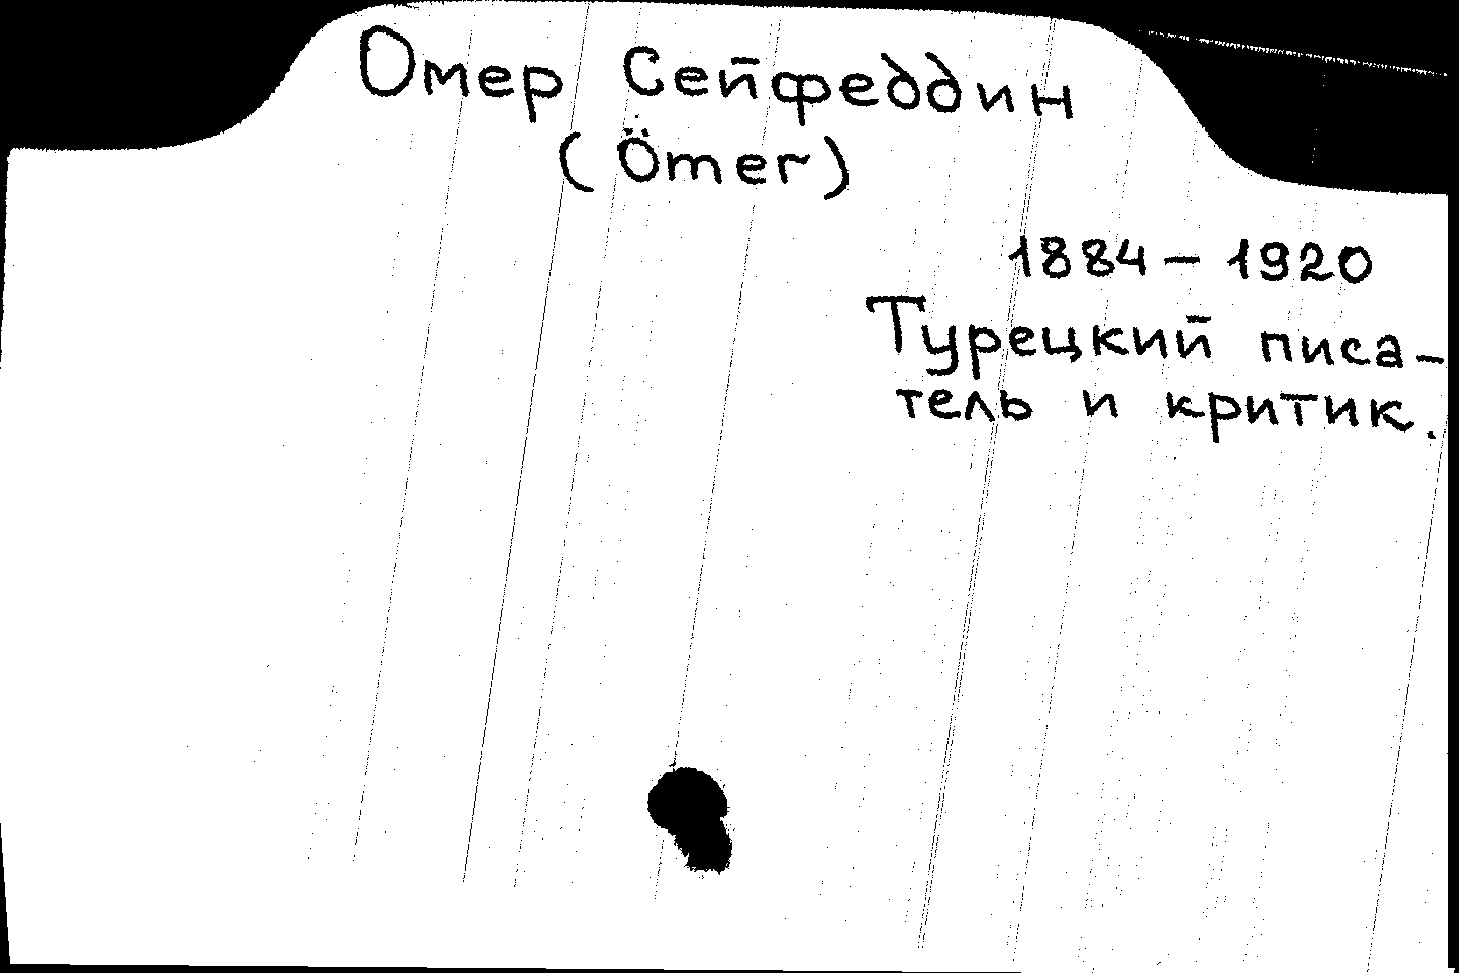 Омер Сейфеддин
(Ömer)
1884 – 1920
Турецкий писа-
тель и критик.